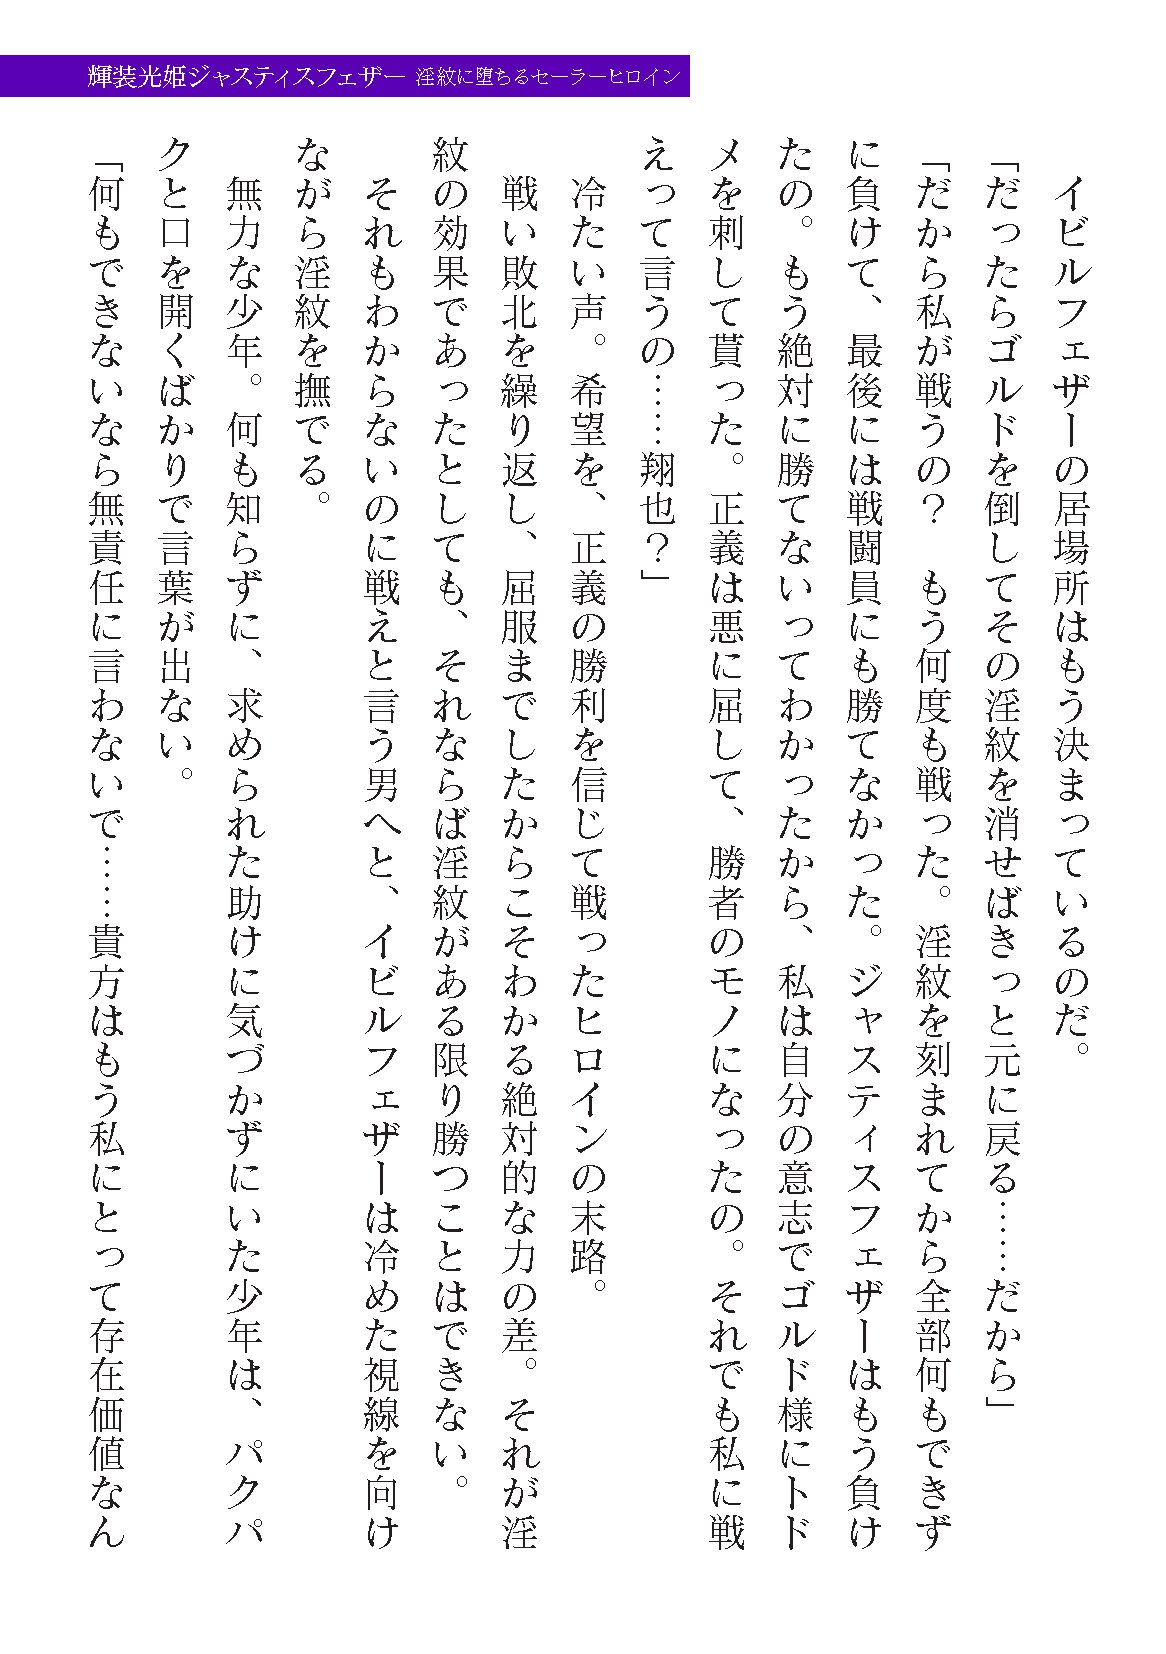 輝装光姫ジャスティスフェザー 淫紋に堕ちるセーラーヒロイン
イビルフェザーの居場所はもう決まっているのだ。
「だったらゴルドを倒してその淫紋を消せばきっと元に戻る……だから」
「だから私が戦うの？　もう何度も戦った。淫紋を刻まれてから全部何もできず
に負けて、最後には戦闘員にも勝てなかった。ジャスティスフェザーはもう負け
たの。もう絶対に勝てないってわかったから、私は自分の意志でゴルド様にトド
メを刺して貰った。正義は悪に屈して、勝者のモノになったの。それでも私に戦
えって言うの……翔也？」
冷たい声。希望を、正義の勝利を信じて戦ったヒロインの末路。
戦い敗北を繰り返し、屈服までしたからこそわかる絶対的な力の差。それが淫
紋の効果であったとしても、それならば淫紋がある限り勝つことはできない。
それもわからないのに戦えと言う男へと、イビルフェザーは冷めた視線を向け
ながら淫紋を撫でる。
無力な少年。何も知らずに、求められた助けに気づかずにいた少年は、パクパ
クと口を開くばかりで言葉が出ない。
「何もできないなら無責任に言わないで……貴方はもう私にとって存在価値なん